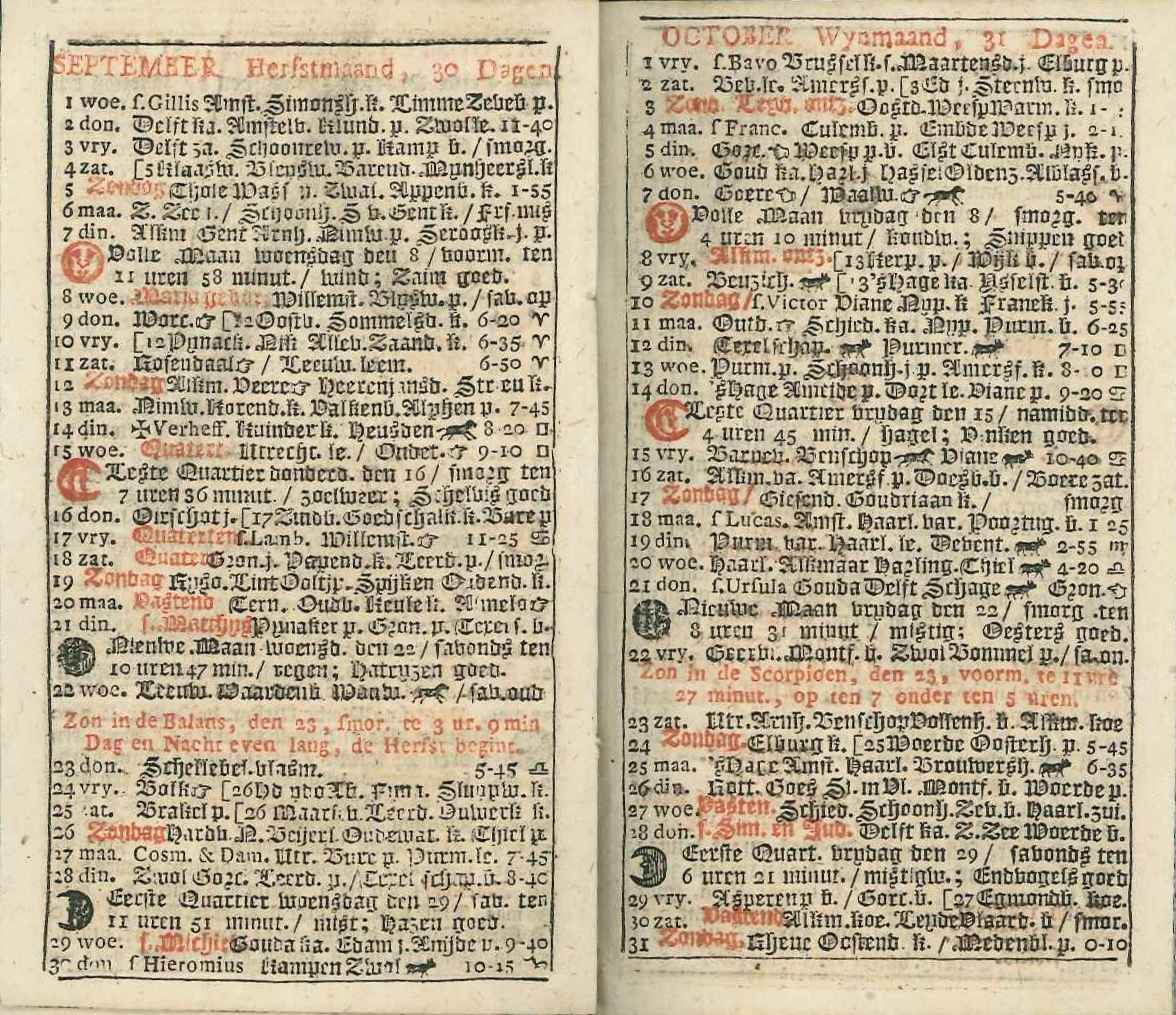 SEPTEMBER Herfstmaand, 30 Dagen
1 woe. s.Gillis Amst. Simonsh.k. Limme Zeveb p.
2 don. Delft ka. Amstelv. Klund. p. Zwolle. 11-40
3 vry. Delft za. Schoonrew. p. Kamp b. / smorg.
4 zat. [5 Klaasw. Bleysw. Barend. Mynheersl. k
5 Zondag Thole Wass p. Zwal. Appenb. k. 1-55
6 maa. Z. Zee / Schoonh. S b. Gent k. /
7 din. Alkm Gent Arnh. Nimw. p. Seroosk. j. p.
Volle Maan woensdag den 8 / voorm. ten
11 uren 58 minut. / wind; Zaim goed.
8 woe. Maria gebor. Willemst. Blysw. p. / sav. op
9 don. Worc. [12 Oostv. Sommelsd. k. 6-20
10 vry. [12 Pynack. Nik Allev. Zaand. k. 6-35
11 zat. Rosendaal / Leeuw. leem. 6-50
12 Zondag Alkm. Veere Heerenj Str en k.
13 maa. Nimw. Korend. k. Valkenb. Alphen p. 7-45
14 din. ✠Verheff. Kuinder k. Heusden 8-20
15 woe. Quatert. Utrecht. le. / Ondet. 9-10
Leste Quartier donderd. den 16 / smorg ten
7 uren 36 minut. / zoelweer; Schelvis goed
16 don. Oirschot j. [17 Zindb. Goedschalk. k. Bure p
17 vry. Quaterten s.Lamb. Willemst. 11-25
18 zat. Quater Gron. j. Papend. k. Leerd. p. / smorg
19 Zondag Ryso. Lint Oostjp. Spijken Oudend. k.
20 maa. Vastend Tern. Oudb. Keule k. Almelo
21 din. s. Matthys Pynaker p. Gron. p. Texel s. b.
Nieuwe Maan woensd. den 22 / savonds ten
10 uren 47 min. / regen; Hatryzen goed.
22 woe. Leeuw. Waardenb. Woud. / sav. oud
Zon in de Balans, den 23, smor. te 3 ur. 9 min
Dag en Nacht even lang, de Herfst begint.
23 don. Schellebel. vlasm. 5-45
24 vry. Bolk [26 Sluipw. k.
25 zat. Brakel p. [26 Maarsv. Leerd. Ouwerk k.
26 Zondag Hardv. N. Beijerl. Oudewat. k. Thiel p
27 maa. Cosm. & Dam. Utr. Bure p. Purm. le. 7-45
28 din. Zwol Gorc. Leerd. p. / Texel schap. b. 8-40
Eerste Quartier woensdag den 29 / sav. ten
11 uren 51 minut. / mist; Hazen goed.
29 woe. s. Michie Gouda ka. Edam j. Amsde v. 9-40
30 don s Hieromius Kampen Zwol 10-15
OCTOBER Wynmaand, 31 Dagen.
1 vry. s.Bavo Brussel k. s. Maartensd. j. Elburg p.
2 zat. Bev. le. Amersf. p. [3 Ed j. Steenw. k. smo
3 Zond. Leyd. ontz. Oostd. Weesp Warm. k. 1-
4 maa. s Franc. Culemb. p. Embde Weesp j. 2-1
5 din. Gorc. Weesp p. b. Elst Culemb. Nyk. p.
6 woe. Goud ka. Harl. j Hassel Oldenz. Alblass. b.
7 don. Goere / Waalw. 5-40
Volle Maan vrydag den 8 / smorg. ten
4 uren 10 minut / koudw.; Snippen goet
8 vry. Alkm. ontz. [13 Herp. p. / Wijk b. / sav. op
9 zat. Beuzich. [13 's Hage ka. Ysselst. b. 5-3
10 Zondag / s.Victor Viane Nyp. k Franek j. 5-55
11 maa. Outd. Schied. ka. Nyp. Purm. b. 6-25
12 din. Texel schap. Purmer. 7-10
13 woe. Purm. p. Schoonh. j. p. Amersf. k. 8-10
14 don. 's Hage Ameide p. Dort le. Viane p. 9-20
Leste Quartier vrydag den 15 / namidd. ten
4 uren 45 min. / hagel; Vinken goed.
15 vry. Barnev. Benschop Viane 10-40
16 zat. Alkm. va. Amersf. p. Doesb. b. / Boere zat.
17 Zondag / Giesend. Goudriaan k. / smorg
18 maa. s Lucas. Amst. Haarl. var. Poortug. b. 1 25
19 din. Purm. var. Haarl. le. Devent. 2-55
20 woe. Haarl. Alkmaar Harling. Thiel 4-20
21 don. s.Ursula Gouda Delft Schage Gron.
Nieuwe Maan vrydag den 22 / smorg ten
8 uren 31 minut / mistig; Oesters goed.
22 vry. Geervl. Montf. b. Zwol Bommel p. / sa. on.
Zon in de Scorpioen, den 23, voorm. te 11 ure
27 minut., op ten 7 onder ten 5 uren.
23 zat. Utr. Arnh. Benschop Vollenh. b. Alkm. koe
24 Zondag. Elburg k. [25 Woerde Oosterh. p. 5-45
25 maa. 's Hage Amst. Haarl. Brouwersh. 6-35
26 din. Rott. Goes St. in Vl. Montf. b. Woerde p.
27 woe. Vasten. Schied. Schoonh. Zev. b. Haarl. zui.
28 don. s. Sim. en Jud. Delft ka. Z. Zee Woerde b.
Eerste Quart. vrydag den 29 / savonds ten
6 uren 21 minut. / mistigw.; Endvogels goed
29 vry. Asperen p b. / Gorc. b. [27 Egmondb. koe.
30 zat. Vastend Alkm. koe. Leyde Vlaard. b / smor.
31 Zondag. Rhene Oostend k. / Medenbl. p. 0-10